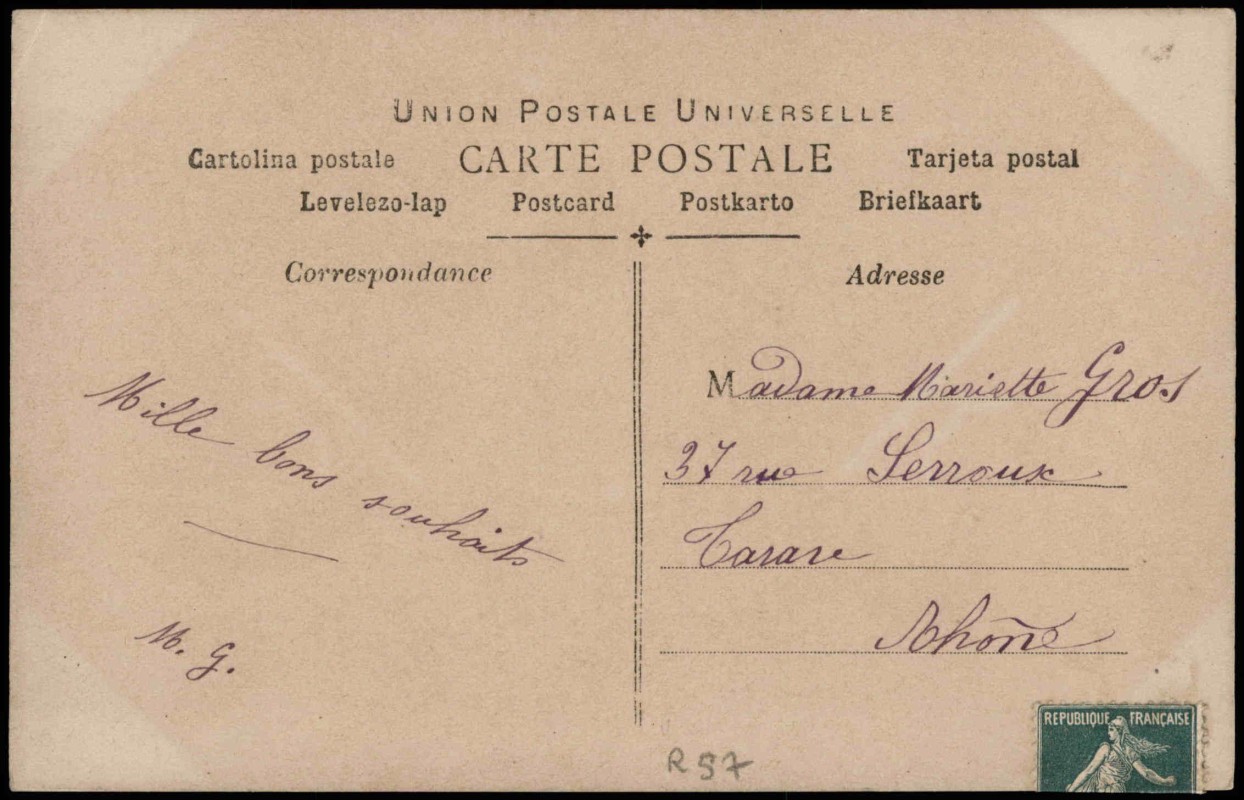 UNION POSTALE UNIVERSELLE
Cartolina postale CARTE POSTALE Tarjeta postal
Levelezo-lap Postcard Postkarto Briefkaart
Correspondance
Adresse
Mille bons souhaits
M. G.
Madame Mariette Gros
37 rue Serroux
Tarare
Rhône
REPUBLIQUE FRANÇAISE
R 57